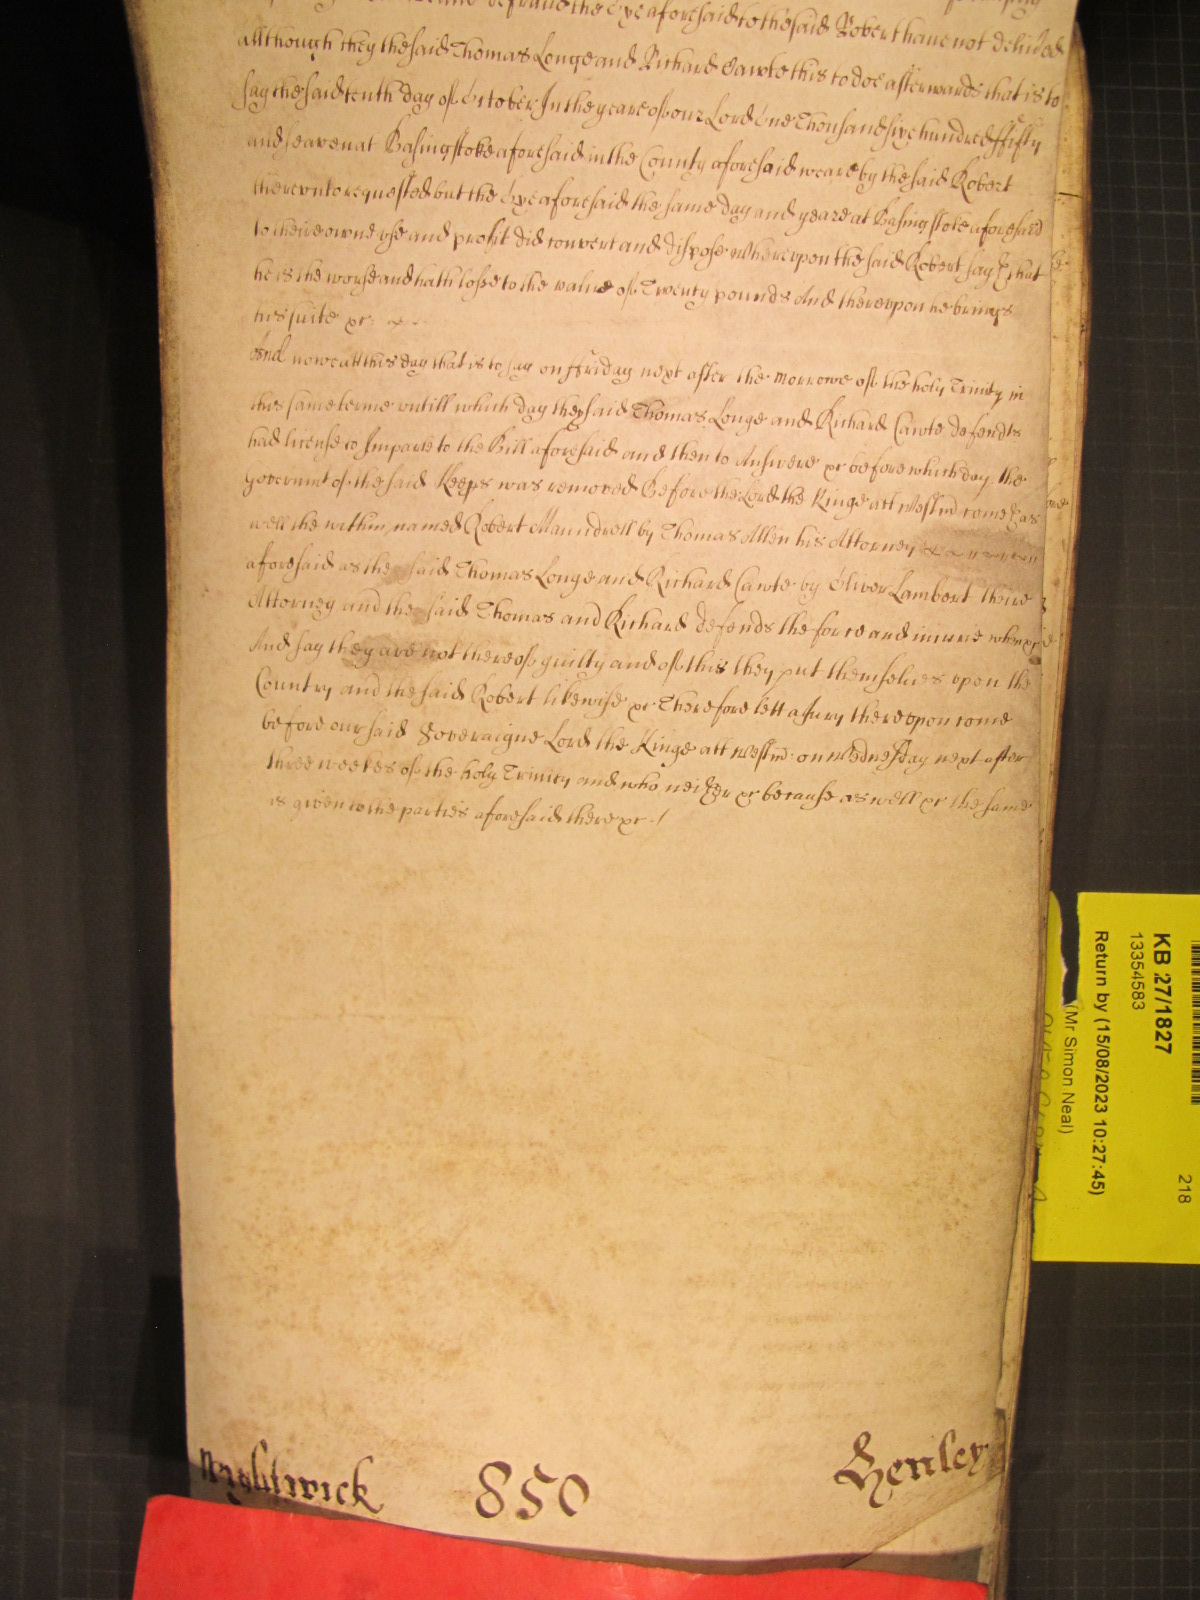 defraud the Oxe aforesaid to the said Robert haue not deliu'ed
allthough they the said Thomas Longe and Richard Cawte this to doe afterwards that is to
say the said tenth day of October In the yeare of our Lord One Thousand six hundred ffifty
and seaven at Basingstoke aforesaid in the County aforesaid weare by the said Robert
therevnto requested but the Oxe aforesaid the same day and yeare at Basingstoke aforesaid
to theire owne vse and profit did convert and dispose Wherevpon the said Robert sayth that
he is the worse and hath losse to the value of Twenty pounds And therevpon he brings
his suite &c:
And nowe att this day that is to say on ffriday next after the morrowe of the holy Trinity in
this same terme vntill which day the said Thomas Longe and Richard Cawte defendts
had license to Imparle to the Bill aforesaid and then to Answere &c before which day the
governmt of the said Keeps was removed Before the Lord the Kinge att Westm' come as
well the within named Robert Maundrell by Thomas Allen his Attorney
aforesaid as the said Thomas Longe and Richard Cawte by Oliver Lambert theire
Attorney and the said Thomas and Richard defends the force and iniurie when &c
And say they are not thereof guilty and of this they put themselues vpon the
Country and the said Robert likewise &c Therefore lett a Jury therevpon come
before our said Soveraigne Lord the Kinge att Westm': on Wednesday next after
three weekes of the holy Trinity and who neither &c because as well &c the same
is given to the parties aforesaid there &c./
Wightwick 850 Henley
KB 27/1827
13354583
218
Return by (15/08/2023 10:27:45)
(Mr Simon Neal)